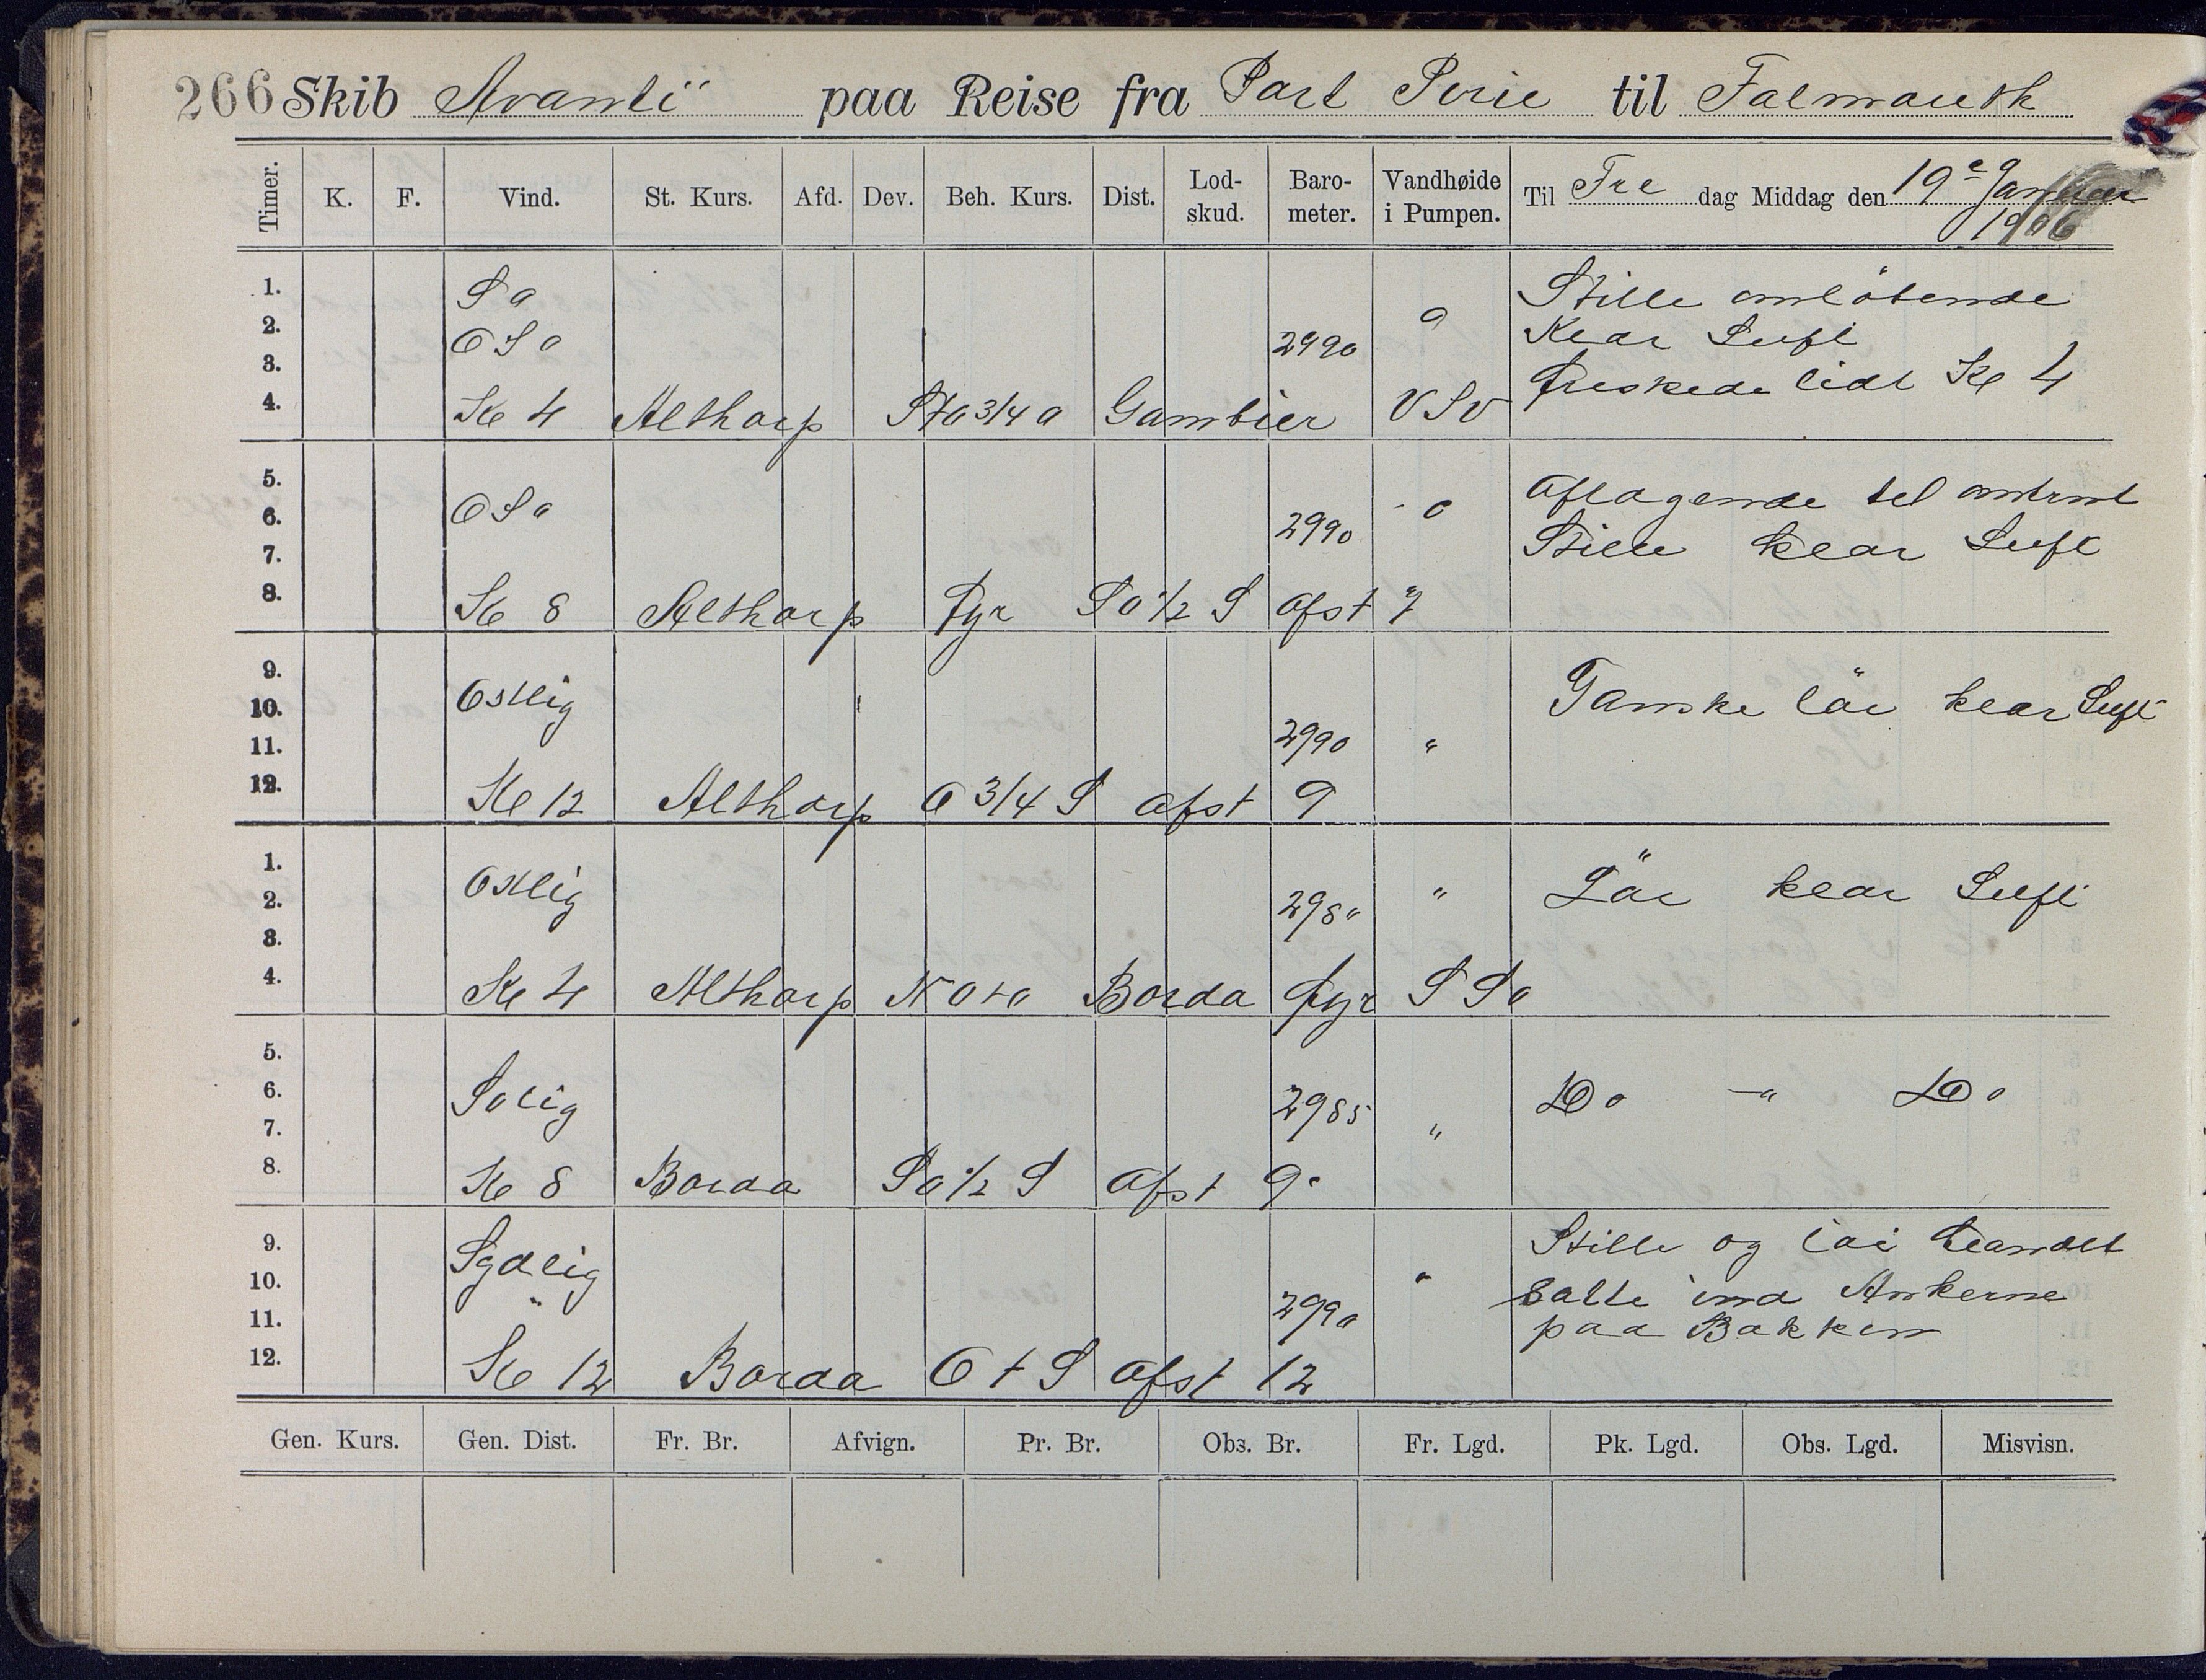 266 Skib Avanti paa Reise fra Port Pirie til Falmouth
Timer. K. F. Vind. St. Kurs. Afd. Dev. Beh. Kurs. Dist. Lod-skud. Baro-meter. Vandhøide i Pumpen. Til Fre dag Middag den 19e Januar 1906
1. SO Stille omløbende
2. OSO 2990 Klar Luft
3. friskede lidt Kl 4
4. Kl 4 Althorp StO 3/4 O Gambier VSV
5. Aftagende til omtrent
6. OSO 2990 Stille klar Luft
7.
8. Kl 8 Althorp Fyr SO 1/2 S afst 7
9.
10. Ostlig Ganske lör klar Luft
11. 2990 "
12. Kl 12 Althorp O 3/4 S afst 9
1.
2. Ostlig 298" " Lör klar Luft
3.
4. Kl 4 Althorp NOtO Borda Fyr SSO
5.
6. Solig 2985 Do -"- Do
7. "
8. Kl 8 Borda SO 1/2 S afst 9
9. Sydlig Stille og
10. " " Satte ind Ankerne
11. 2990 paa Bakken
12. Kl 12 Borda OtS afst 12
Gen. Kurs. Gen. Dist. Fr. Br. Afvign. Pr. Br. Obs. Br. Fr. Lgd. Pk. Lgd. Obs. Lgd. Misvisn.